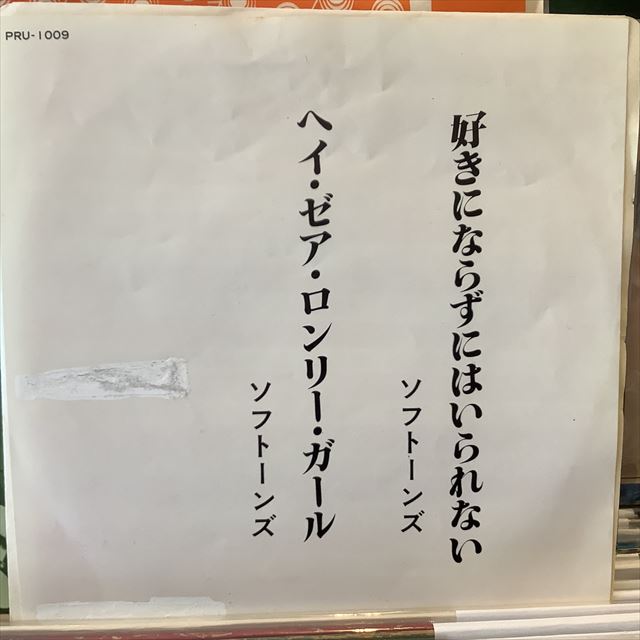 PRU-1009
好きにならずにはいられない
ソフトーンズ
ヘイ・ゼア・ロンリー・ガール
ソフトーンズ